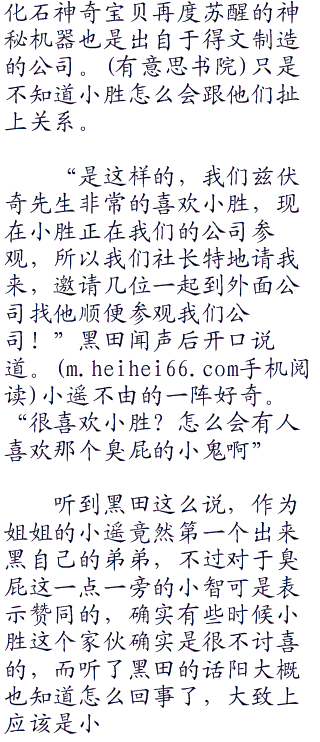 化石神奇宝贝再度苏醒的神
秘机器也是出自于得文制造
的公司。(有意思书院)只是
不知道小胜怎么会跟他们扯
上关系。
“是这样的，我们兹伏
奇先生非常的喜欢小胜，现
在小胜正在我们的公司参
观，所以我们社长特地请我
来，邀请几位一起到外面公
司找他顺便参观我们公
司！”黑田闻声后开口说
道。(m.heihei66.com手机阅
读)小遥不由的一阵好奇。
“很喜欢小胜？怎么会有人
喜欢那个臭屁的小鬼啊”
听到黑田这么说，作为
姐姐的小遥竟然第一个出来
黑自己的弟弟，不过对于臭
屁这一点一旁的小智可是表
示赞同的，确实有些时候小
胜这个家伙确实是很不讨喜
的，而听了黑田的话阳大概
也知道怎么回事了，大致上
应该是小